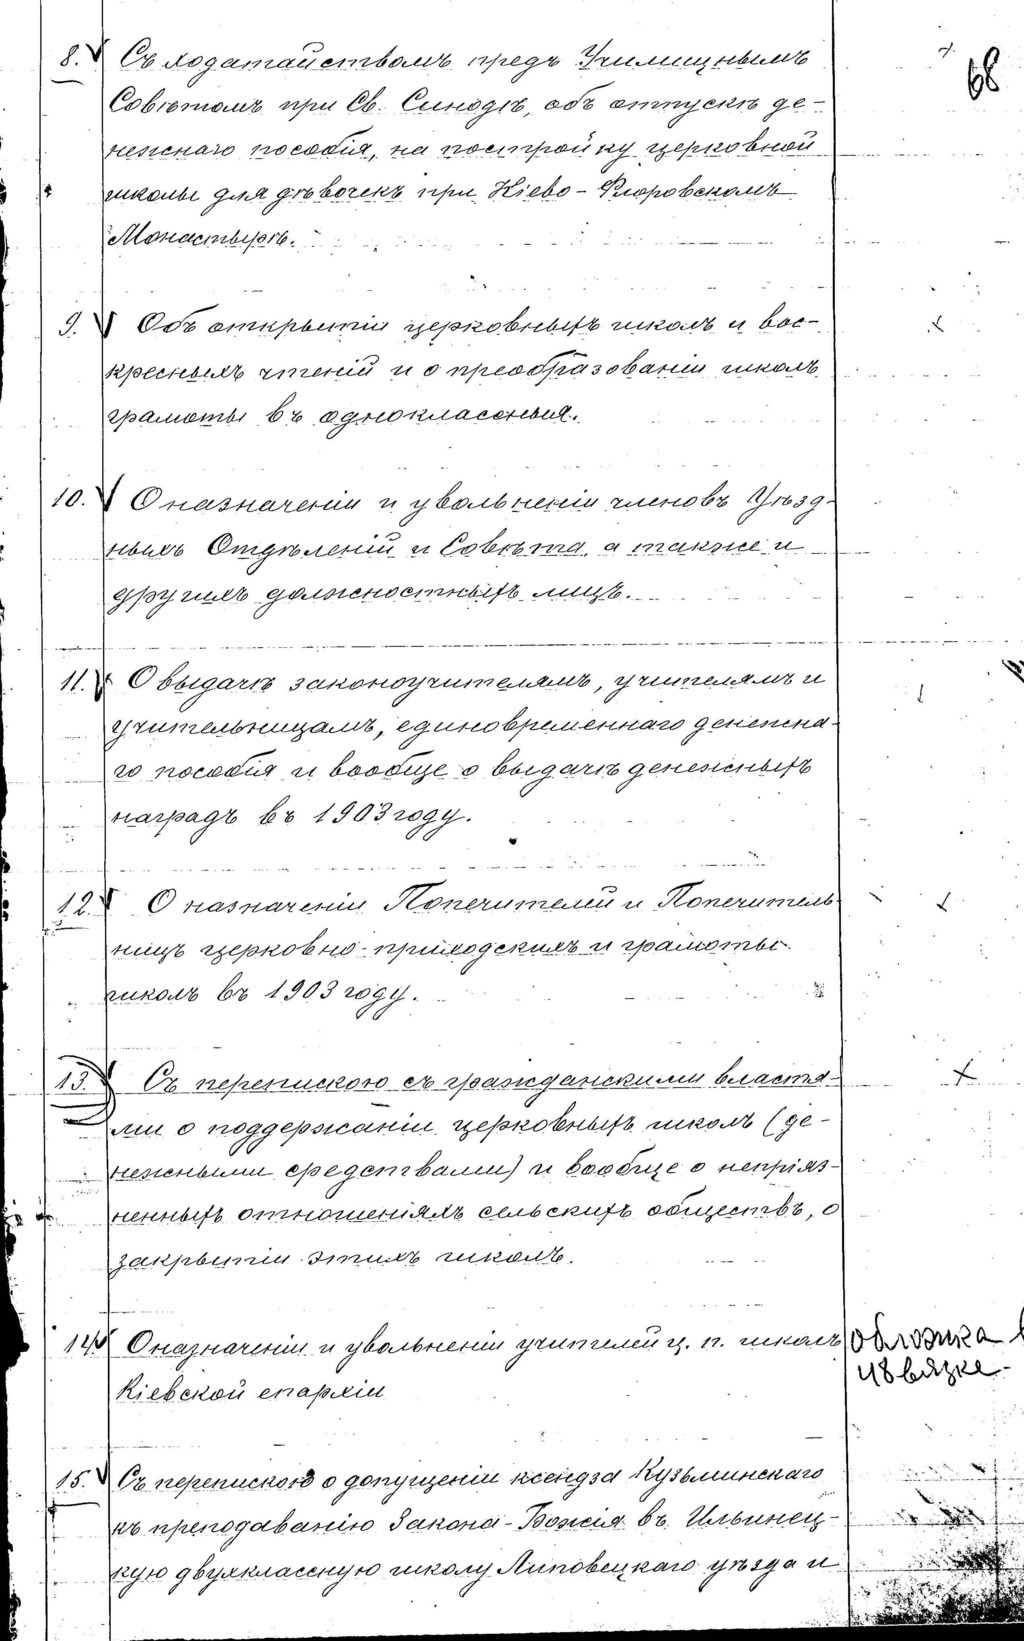 68
8. Съ ходатайствомъ предъ Училищнымъ
Совѣтомъ при Св. Синодѣ, объ отпускѣ де-
нежнаго пособія, на постройку церковной
школы для дѣвочекъ при Кіево-Флоровскомъ
Монастырѣ.
9. Объ открытіи церковныхъ школъ и вос-
кресныхъ чтеній и о преобразованіи школъ
грамоты въ одноклассныя.
10. О назначеніи и увольненіи членовъ Уѣзд-
ныхъ Отдѣленій и Совѣта, а также и
другихъ должностныхъ лицъ.
11. О выдачѣ законоучителямъ, учителямъ и
учительницамъ, единовременнаго денежна-
го пособія и вообще о выдачѣ денежныхъ
наградъ въ 1903 году.
12. О назначеніи Попечителей и Попечитель-
ницъ церковно-приходскихъ и грамоты
школъ въ 1903 году.
13. Съ перепискою съ гражданскими властя-
ми о поддержаніи церковныхъ школъ (де-
нежными средствами) и вообще о непріяз-
ненныхъ отношеніяхъ сельскихъ обществъ, о
закрытіи этихъ школъ.
14. О назначеніи и увольненіи учителей ц. п. школъ
Кіевской епархіи
обложка в
48 вязке-
15. Съ перепискою о допущеніи ксендза Кузьминскаго
къ преподаванію Закона-Божія въ Ильинец-
кую двухклассную школу Липовецкаго уѣзда и